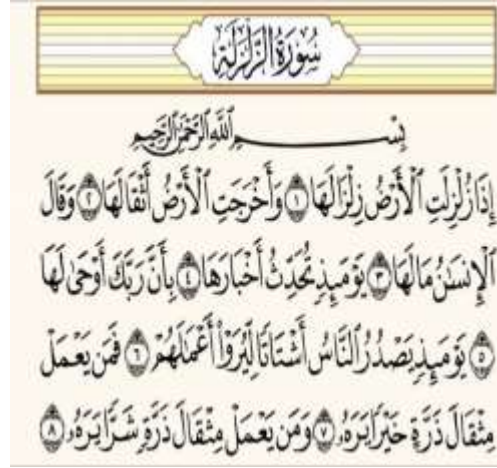 سُورَةُ الزَّلْزَلَةِ
بِسْمِ اللَّهِ الرَّحْمَٰنِ الرَّحِيمِ
إِذَا زُلْزِلَتِ ٱلْأَرْضُ زِلْزَالَهَا ١ وَأَخْرَجَتِ ٱلْأَرْضُ أَثْقَالَهَا ٢ وَقَالَ
ٱلْإِنسَٰنُ مَا لَهَا ٣ يَوْمَئِذٍ تُحَدِّثُ أَخْبَارَهَا ٤ بِأَنَّ رَبَّكَ أَوْحَىٰ لَهَا
٥ يَوْمَئِذٍ يَصْدُرُ ٱلنَّاسُ أَشْتَاتًا لِّيُرَوْا۟ أَعْمَٰلَهُمْ ٦ فَمَن يَعْمَلْ
مِثْقَالَ ذَرَّةٍ خَيْرًا يَرَهُۥ ٧ وَمَن يَعْمَلْ مِثْقَالَ ذَرَّةٍ شَرًّا يَرَهُۥ ٨